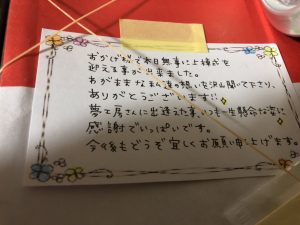 おかげ様で本日無事に上棟式を
迎える事が出来ました。
わがままな私達の想いを沢山聞いて下さり、
ありがとうございます!!
夢工房さんに出逢えた事、いつも一生懸命な姿に
感謝でいっぱいです。
今後もどうぞ宜しくお願い申し上げます。